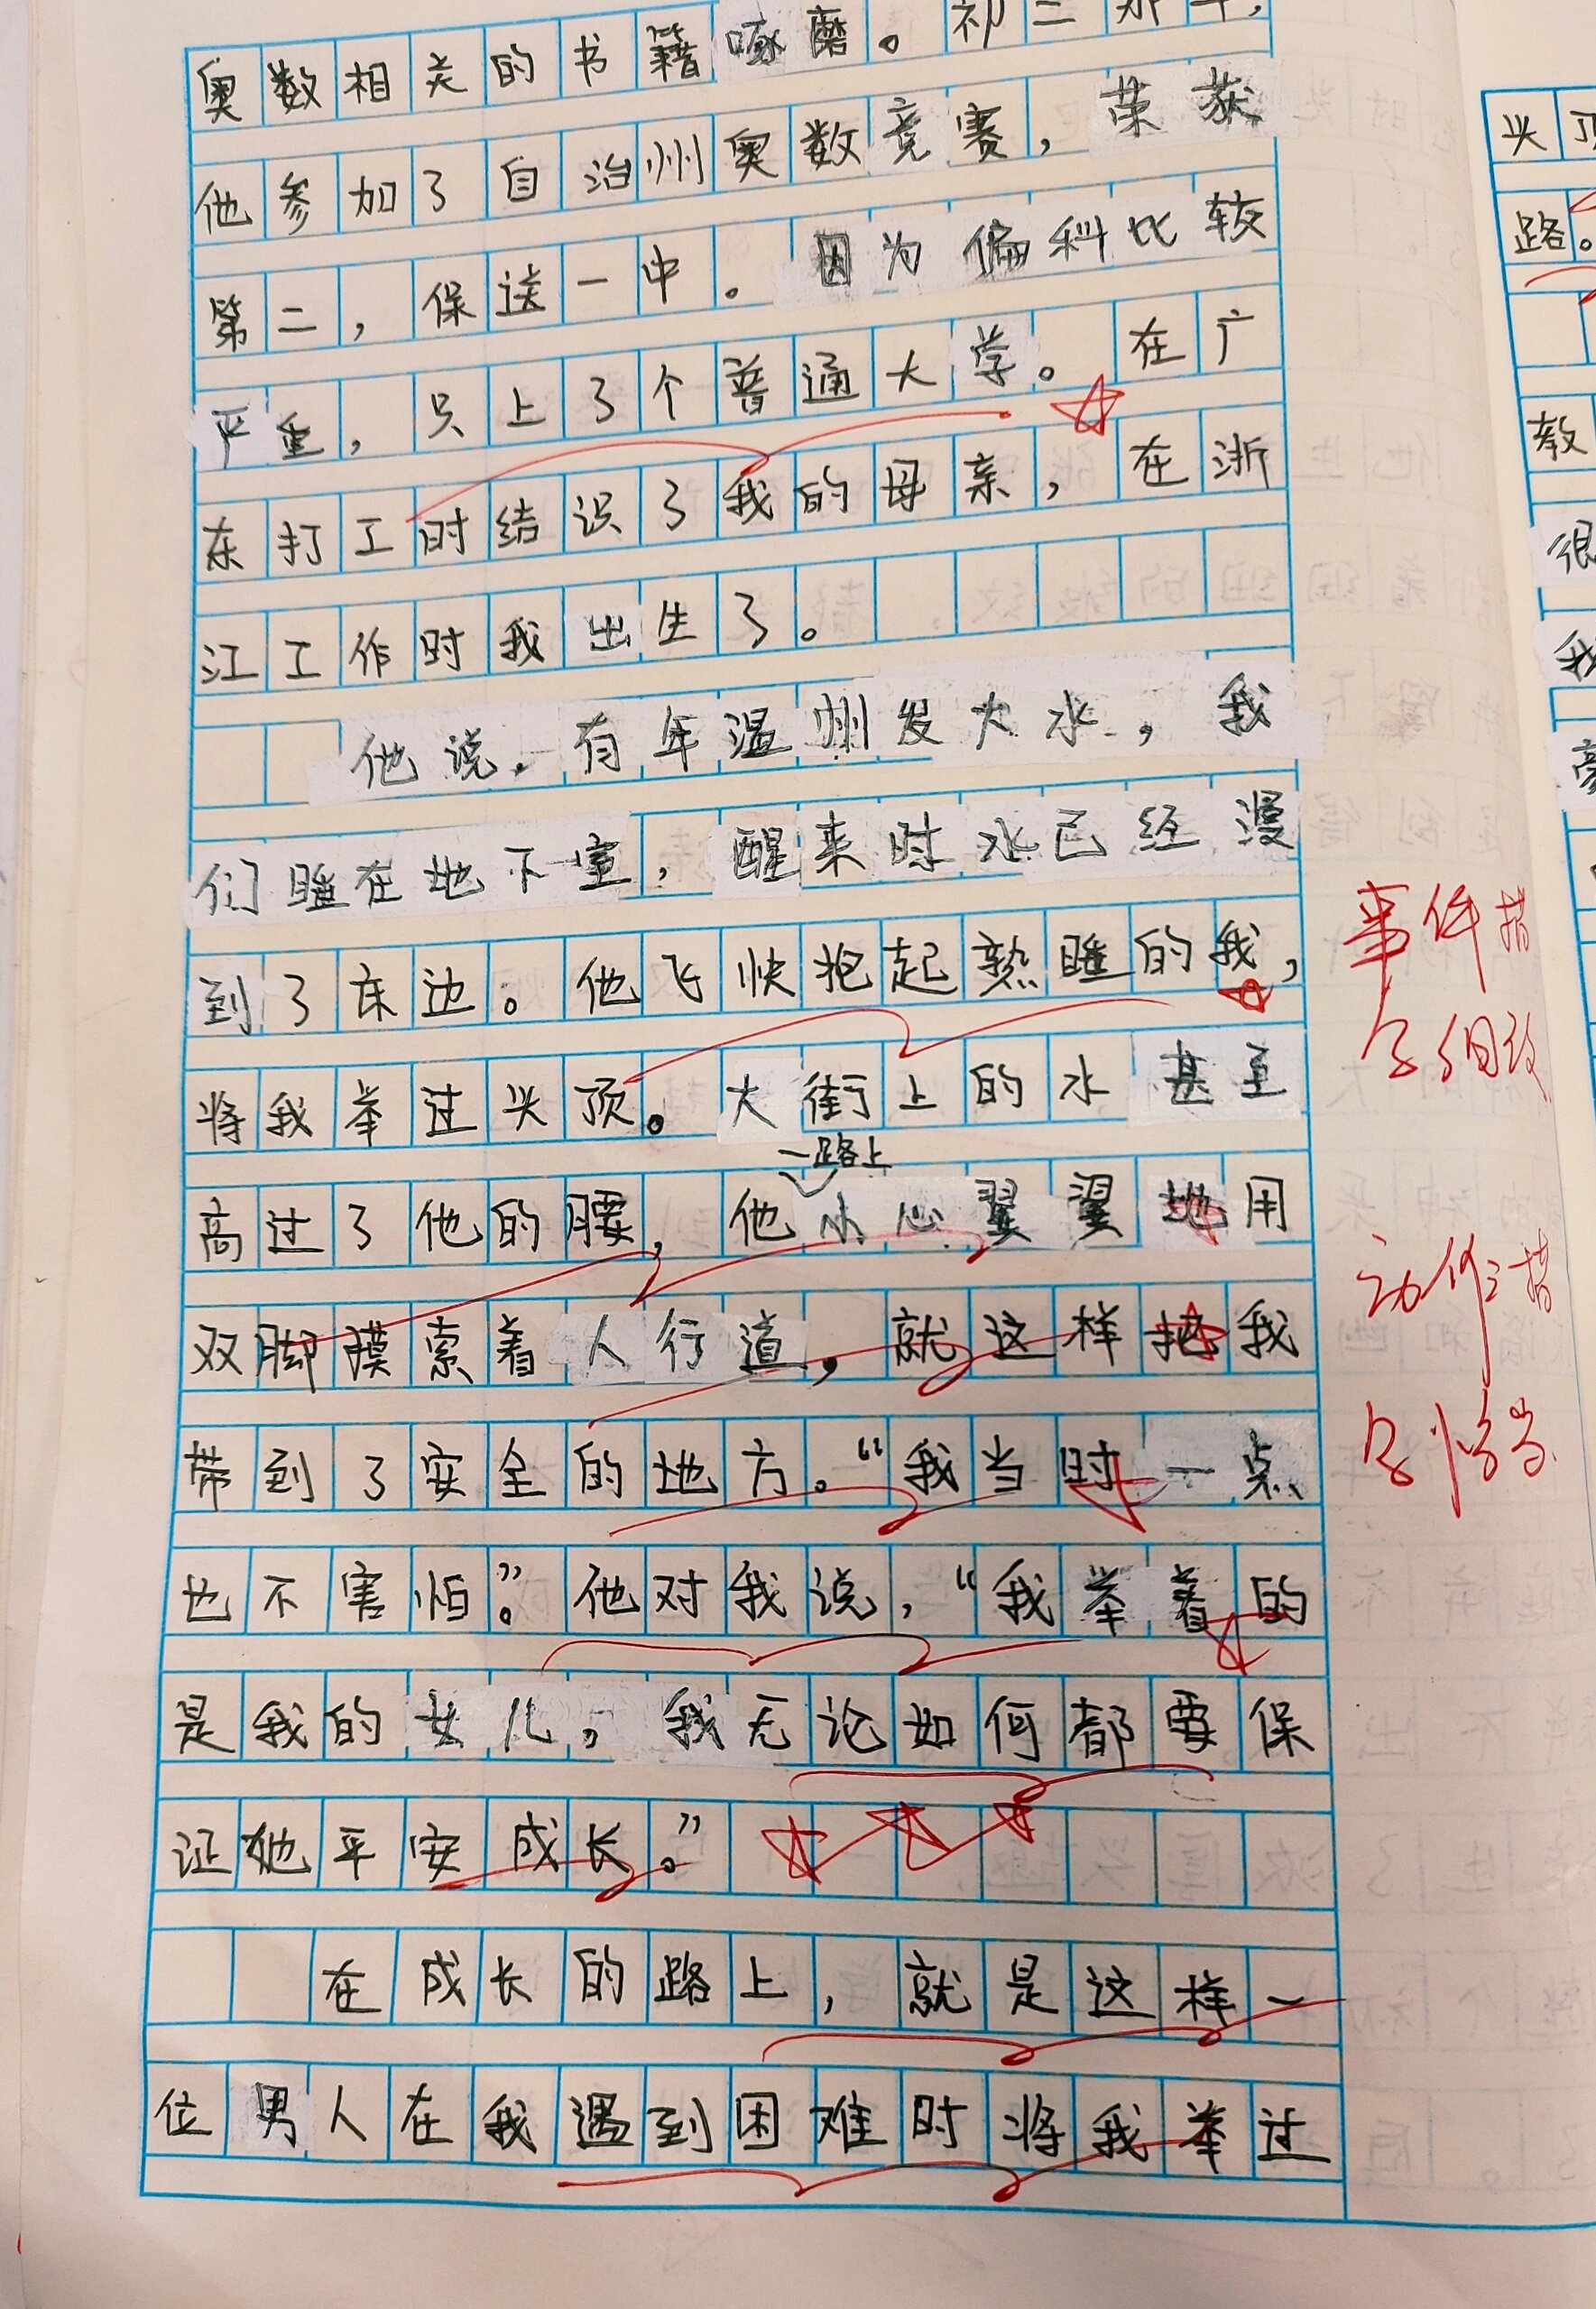 奥数相关的书籍啄磨。初二那年，
他参加了自治州奥数竞赛，荣获
第二，保送一中。因为偏科比较
严重，只上了个普通大学。在广
东打工时结识了我的母亲，在浙
江工作时我出生了。
他说，有年温州发大水，我
们睡在地下室，醒来时水已经漫
到了床边。他飞快抱起熟睡的我，
将我举过头顶。大街上的水甚至
一路上
高过了他的腰，他小心翼翼地用
双脚摸索着人行道，就这样把我
带到了安全的地方。“我当时一点
也不害怕”。他对我说，“我举着的
是我的女儿，我无论如何都要保
证她平安成长。”
在成长的路上，就是这样一
位男人在我遇到困难时将我举过
事件描
动作描
路。
教
很
我